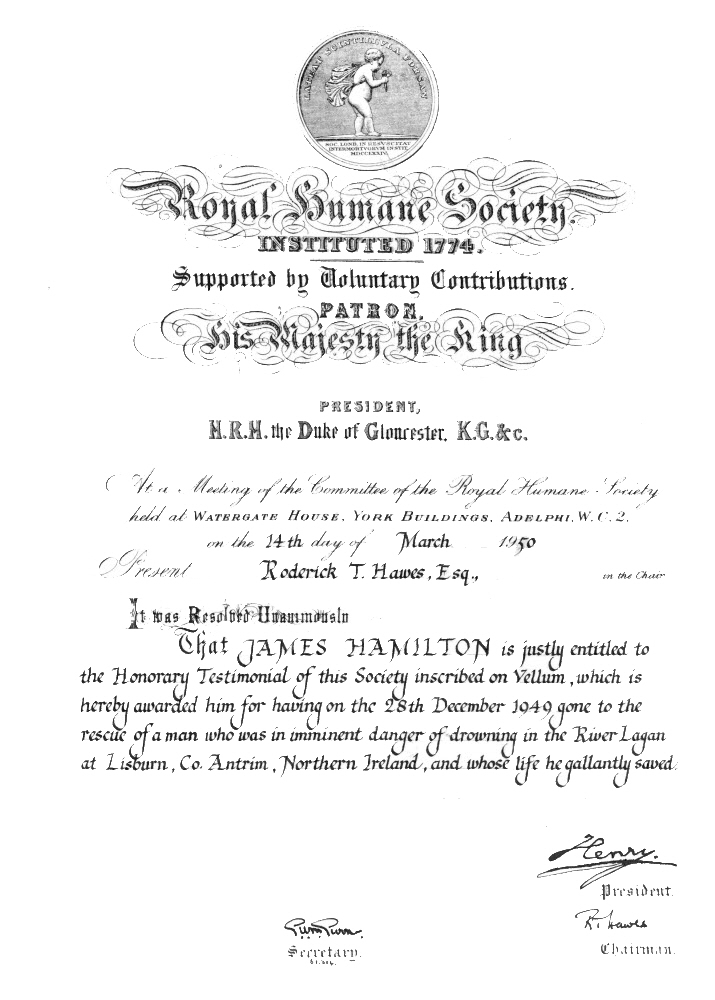 LATEAT SCINTILLVLA FORSAN
SOC. LOND. IN RESVSCITAT
INTERMORTVORVM INSTIT.
MDCCLXXIV.
Royal Humane Society.
INSTITUTED 1774.
Supported by Voluntary Contributions.
PATRON,
His Majesty the King
PRESIDENT,
H.R.H. the Duke of Gloucester, K.G. &c.
At a Meeting of the Committee of the Royal Humane Society
held at WATERGATE HOUSE, YORK BUILDINGS, ADELPHI, W.C.2.
on the 14th day of March 1950
Present Roderick T. Hawes, Esq., in the Chair
It was Resolved Unanimously
That JAMES HAMILTON is justly entitled to
the Honorary Testimonial of this Society inscribed on Vellum, which is
hereby awarded him for having on the 28th December 1949 gone to the
rescue of a man who was in imminent danger of drowning in the River Lagan
at Lisburn, Co. Antrim, Northern Ireland, and whose life he gallantly saved.
Henry.
President.
R. Hawes
Secretary.
Chairman.